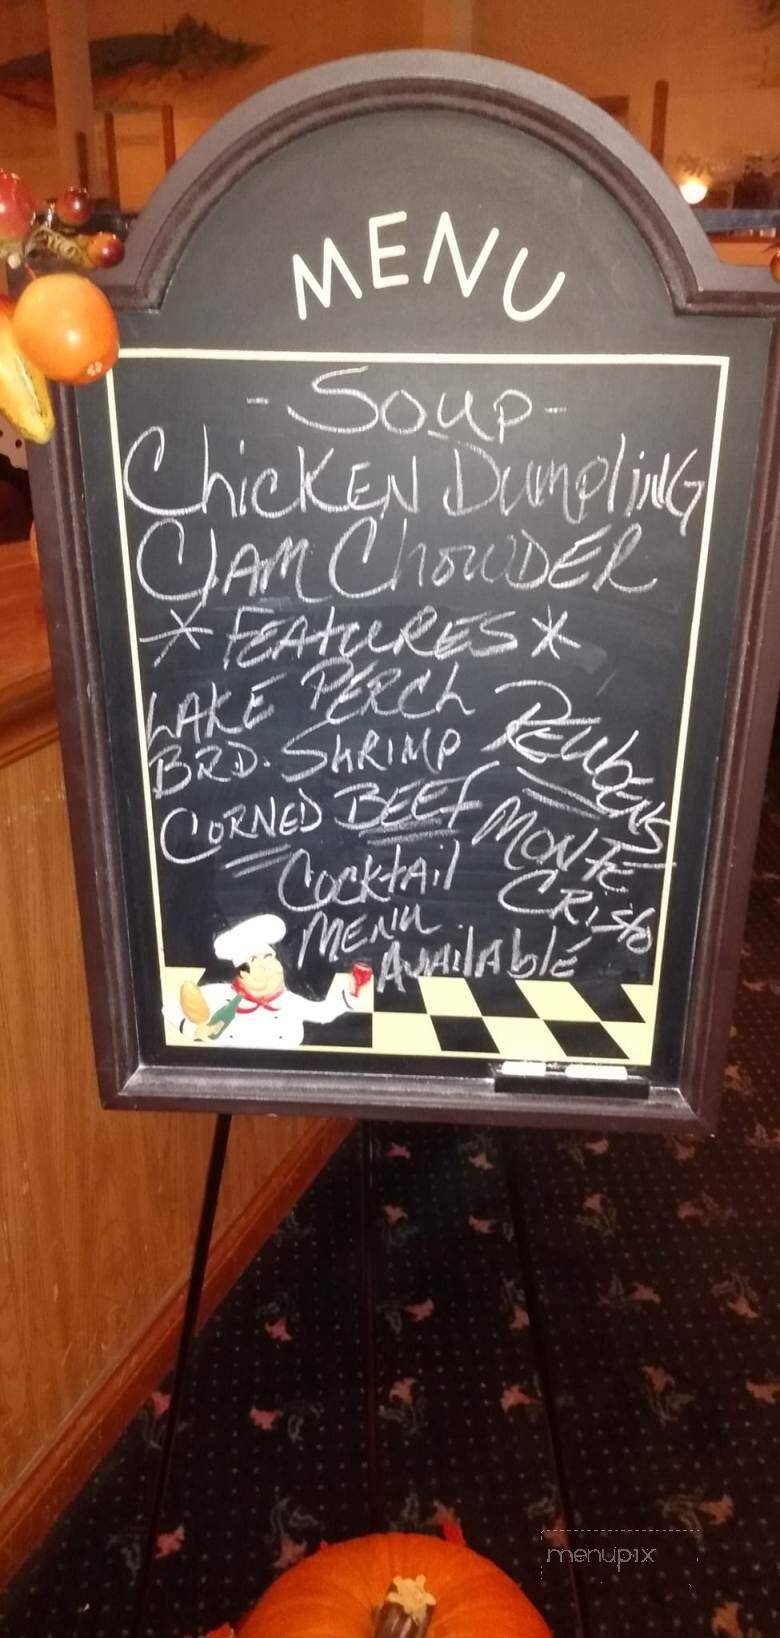 MENU
-Soup-
Chicken Dumpling
Clam Chowder
*Features*
Lake Perch
Brd. Shrimp
Reubens
Corned Beef
Monte
Cristo
Cocktail
Menu
Available
menupix